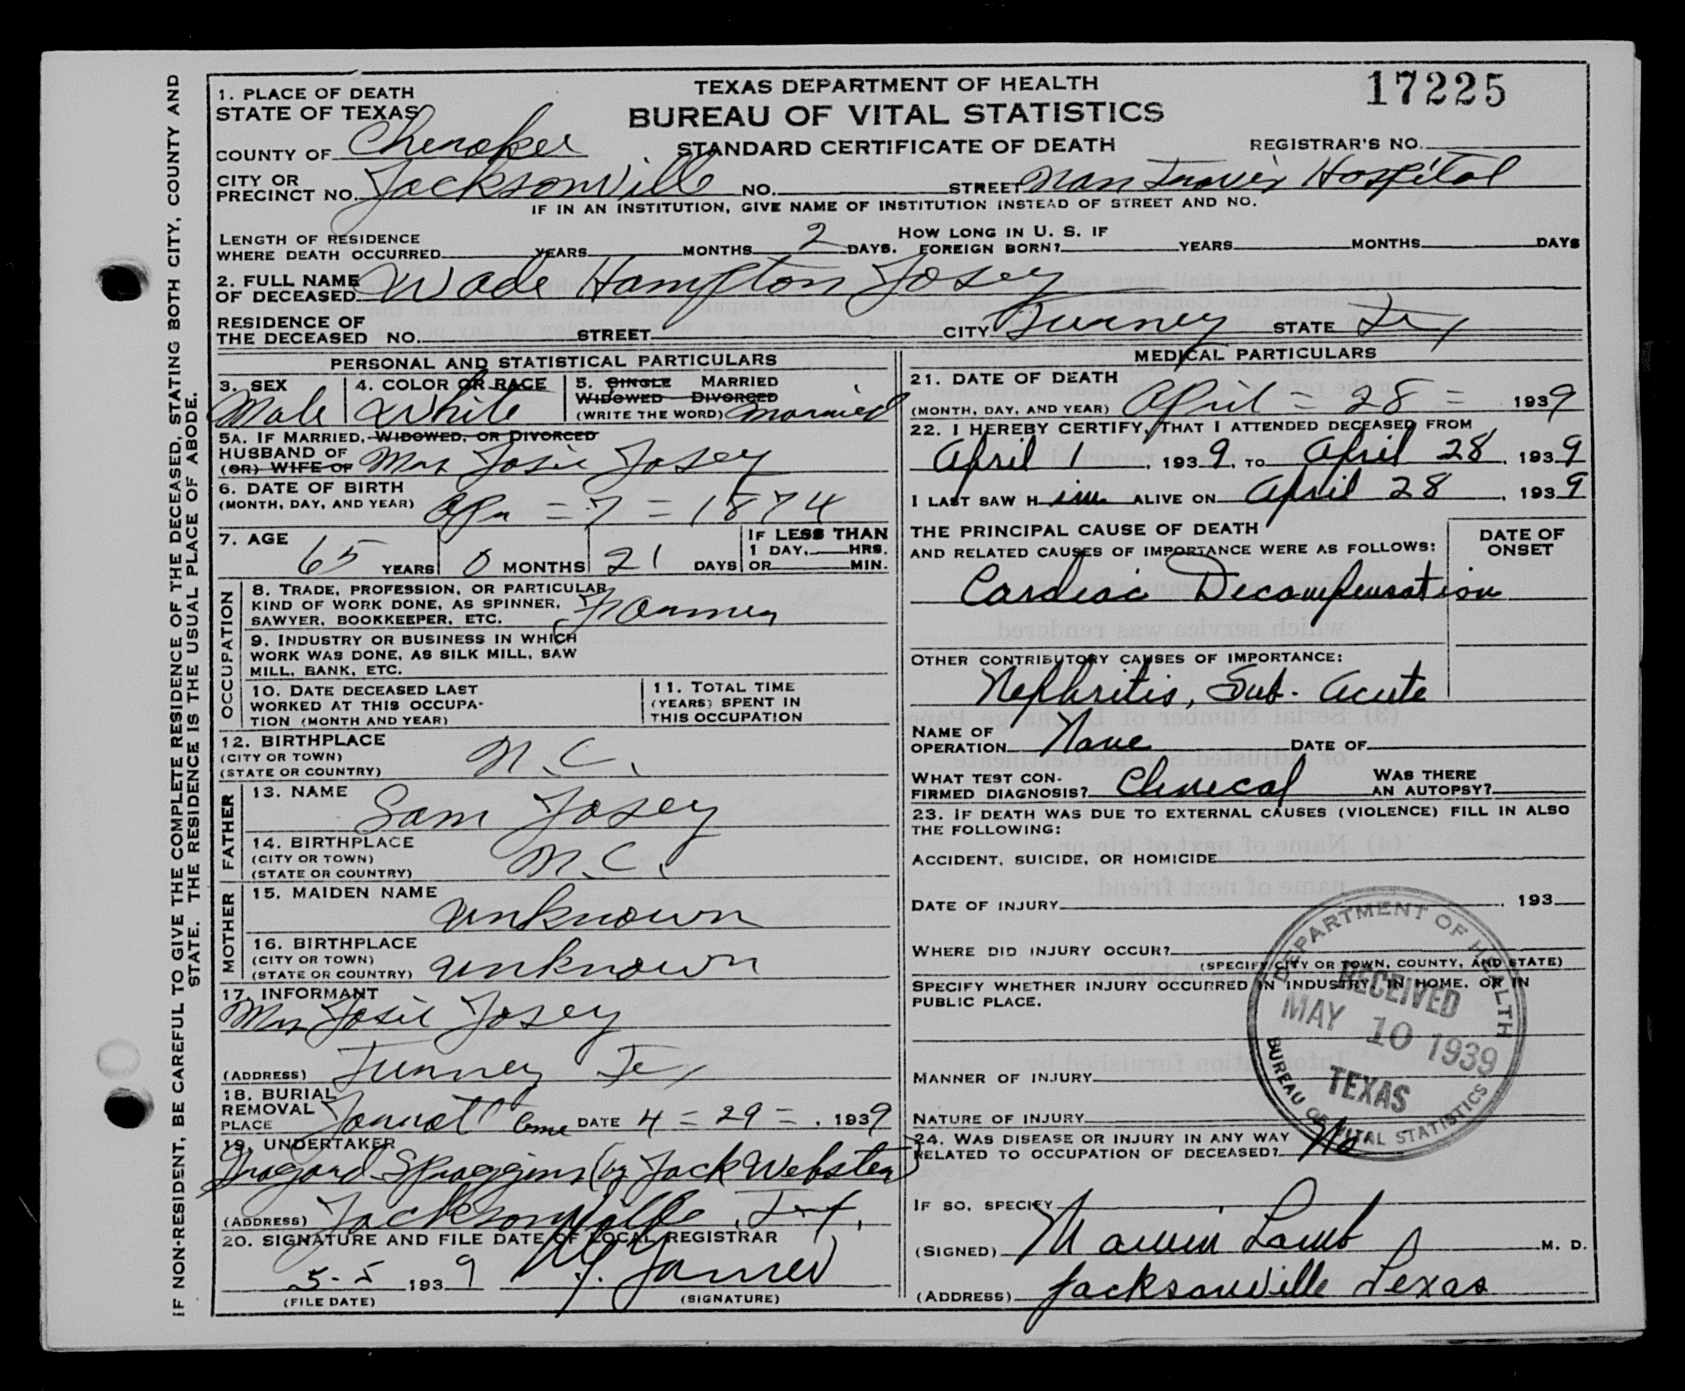 17225
TEXAS DEPARTMENT OF HEALTH
BUREAU OF VITAL STATISTICS
STANDARD CERTIFICATE OF DEATH
REGISTRAR'S NO.
1. PLACE OF DEATH
STATE OF TEXAS
COUNTY OF Cherokee
CITY OR PRECINCT NO. Jacksonville NO. STREET Nan Travis Hospital
IF IN AN INSTITUTION, GIVE NAME OF INSTITUTION INSTEAD OF STREET AND NO.
LENGTH OF RESIDENCE WHERE DEATH OCCURRED YEARS MONTHS 2 DAYS. HOW LONG IN U. S. IF FOREIGN BORN? YEARS MONTHS DAYS
2. FULL NAME OF DECEASED Wade Hampton Josey
RESIDENCE OF THE DECEASED NO. STREET CITY Turney STATE Tex
PERSONAL AND STATISTICAL PARTICULARS
3. SEX Male
4. COLOR OR RACE White
5. SINGLE MARRIED WIDOWED DIVORCED (WRITE THE WORD) married
5A. IF MARRIED, WIDOWED, OR DIVORCED
HUSBAND OF (OR) WIFE OF Mrs Josie Josey
6. DATE OF BIRTH (MONTH, DAY, AND YEAR) Apr = 7 = 1874
7. AGE 65 YEARS 0 MONTHS 21 DAYS IF LESS THAN 1 DAY, HRS. OR MIN.
OCCUPATION
8. TRADE, PROFESSION, OR PARTICULAR KIND OF WORK DONE, AS SPINNER, SAWYER, BOOKKEEPER, ETC. Farmer
9. INDUSTRY OR BUSINESS IN WHICH WORK WAS DONE, AS SILK MILL, SAW MILL, BANK, ETC.
10. DATE DECEASED LAST WORKED AT THIS OCCUPATION (MONTH AND YEAR)
11. TOTAL TIME (YEARS) SPENT IN THIS OCCUPATION
12. BIRTHPLACE (CITY OR TOWN) (STATE OR COUNTRY) N.C.
FATHER
13. NAME Sam Josey
14. BIRTHPLACE (CITY OR TOWN) (STATE OR COUNTRY) N.C.
MOTHER
15. MAIDEN NAME unknown
16. BIRTHPLACE (CITY OR TOWN) (STATE OR COUNTRY) unknown
17. INFORMANT Mrs Josie Josey
(ADDRESS) Turney Tex
18. BURIAL REMOVAL PLACE Cem DATE 4 = 29 = , 1939
19. UNDERTAKER Spraggins (by Jack Webster)
(ADDRESS) Jacksonville, Tex,
20. SIGNATURE AND FILE DATE OF LOCAL REGISTRAR
5-5 1939
(FILE DATE) (SIGNATURE)
MEDICAL PARTICULARS
21. DATE OF DEATH (MONTH, DAY, AND YEAR) April = 28 = 1939
22. I HEREBY CERTIFY, THAT I ATTENDED DECEASED FROM
April 1, 1939, TO April 28, 1939
I LAST SAW H im ALIVE ON April 28, 1939
THE PRINCIPAL CAUSE OF DEATH AND RELATED CAUSES OF IMPORTANCE WERE AS FOLLOWS: DATE OF ONSET
Cardiac Decompensation
OTHER CONTRIBUTORY CAUSES OF IMPORTANCE:
Nephritis, Sub-Acute
NAME OF OPERATION None DATE OF
WHAT TEST CONFIRMED DIAGNOSIS? Clinical WAS THERE AN AUTOPSY?
23. IF DEATH WAS DUE TO EXTERNAL CAUSES (VIOLENCE) FILL IN ALSO THE FOLLOWING:
ACCIDENT, SUICIDE, OR HOMICIDE
DATE OF INJURY , 193
WHERE DID INJURY OCCUR?
(SPECIFY CITY OR TOWN, COUNTY, AND STATE)
SPECIFY WHETHER INJURY OCCURRED IN INDUSTRY, IN HOME, OR IN PUBLIC PLACE.
MANNER OF INJURY
NATURE OF INJURY
24. WAS DISEASE OR INJURY IN ANY WAY RELATED TO OCCUPATION OF DECEASED? No
IF SO, SPECIFY
(SIGNED) Marvin Lamb M. D.
(ADDRESS) Jacksonville Texas
DEPARTMENT OF HEALTH
RECEIVED
MAY 10 1939
TEXAS
BUREAU OF VITAL STATISTICS
IF NON-RESIDENT, BE CAREFUL TO GIVE THE COMPLETE RESIDENCE OF THE DECEASED, STATING BOTH CITY, COUNTY AND STATE. THE RESIDENCE IS THE USUAL PLACE OF ABODE.